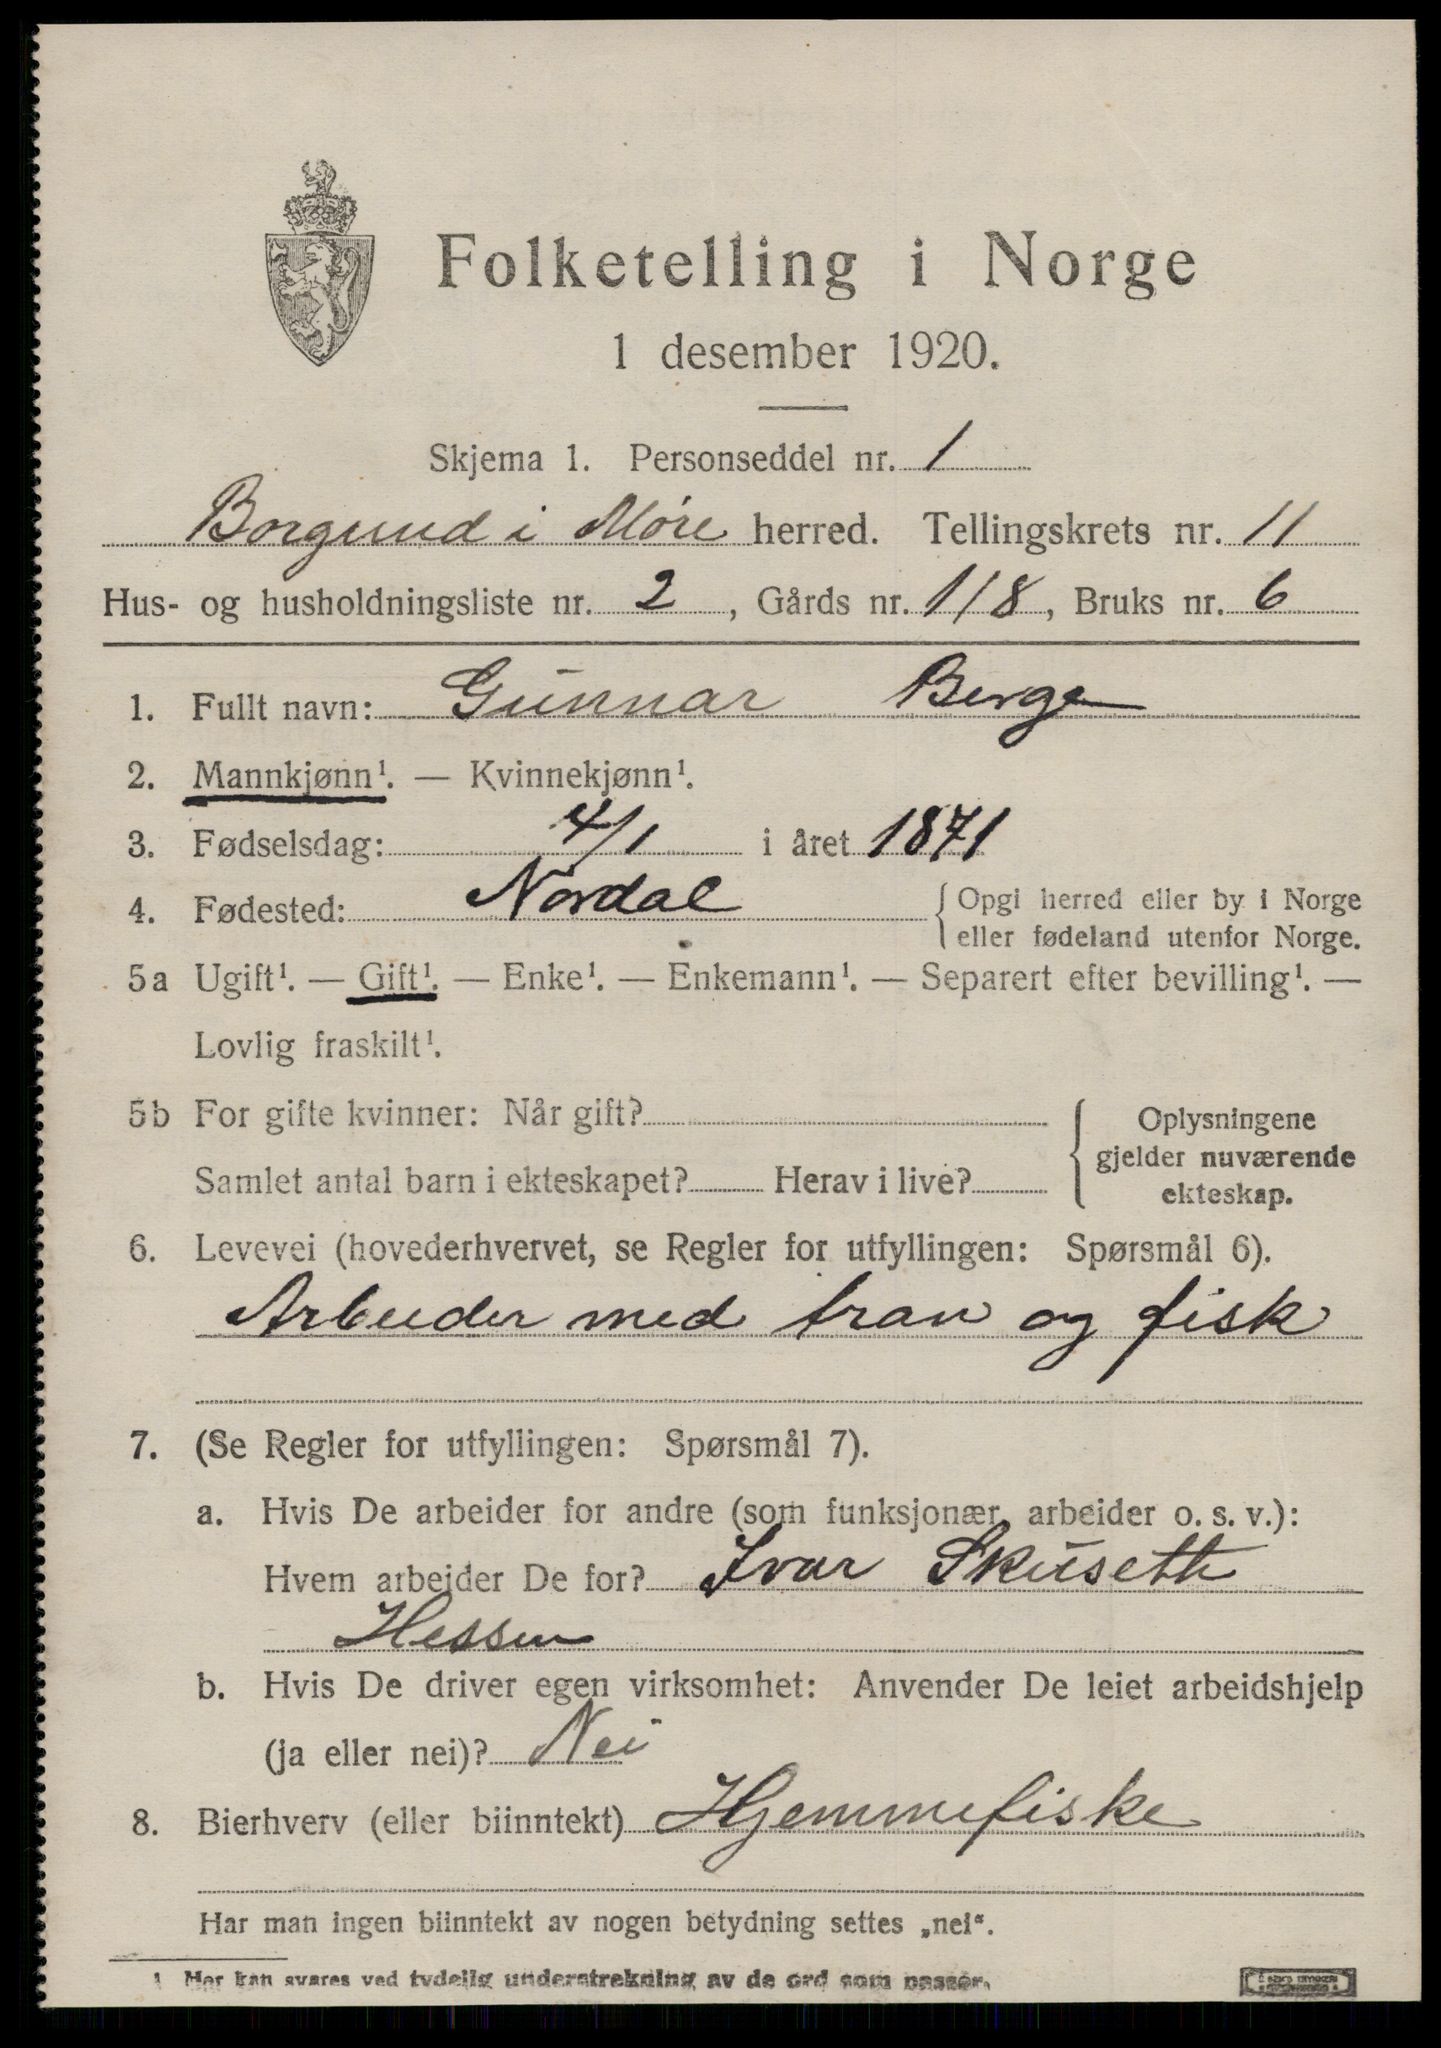 Folketelling i Norge
1 desember 1920.
Skjema 1. Personseddel nr. 1
Borgund i Møre herred. Tellingskrets nr. 11
Hus- og husholdningsliste nr. 2, Gårds nr. 118, Bruks nr. 6
1. Fullt navn: Gunnar Berge
2. Mannkjønn¹. — Kvinnekjønn¹.
3. Fødselsdag: 4/1 i året 1871
4. Fødested: Nordal { Opgi herred eller by i Norge
eller fødeland utenfor Norge.
5a Ugift¹. — Gift¹. — Enke¹. — Enkemann¹. — Separert efter bevilling¹. —
Lovlig fraskilt¹.
5b For gifte kvinner: Når gift?
Samlet antal barn i ekteskapet? Herav i live?
{ Oplysningene
gjelder nuværende
ekteskap.
6. Levevei (hovederhvervet, se Regler for utfyllingen: Spørsmål 6).
Arbeider med tran og fisk
7. (Se Regler for utfyllingen: Spørsmål 7).
a. Hvis De arbeider for andre (som funksjonær, arbeider o. s. v.):
Hvem arbeider De for? Ivar Skúseth
Hessen
b. Hvis De driver egen virksomhet: Anvender De leiet arbeidshjelp
(ja eller nei)? Nei
8. Bierhverv (eller biinntekt) Hjemmefiske
Har man ingen biinntekt av nogen betydning settes „nei“.
1 Her kan svares ved tydelig understrekning av de ord som passer.